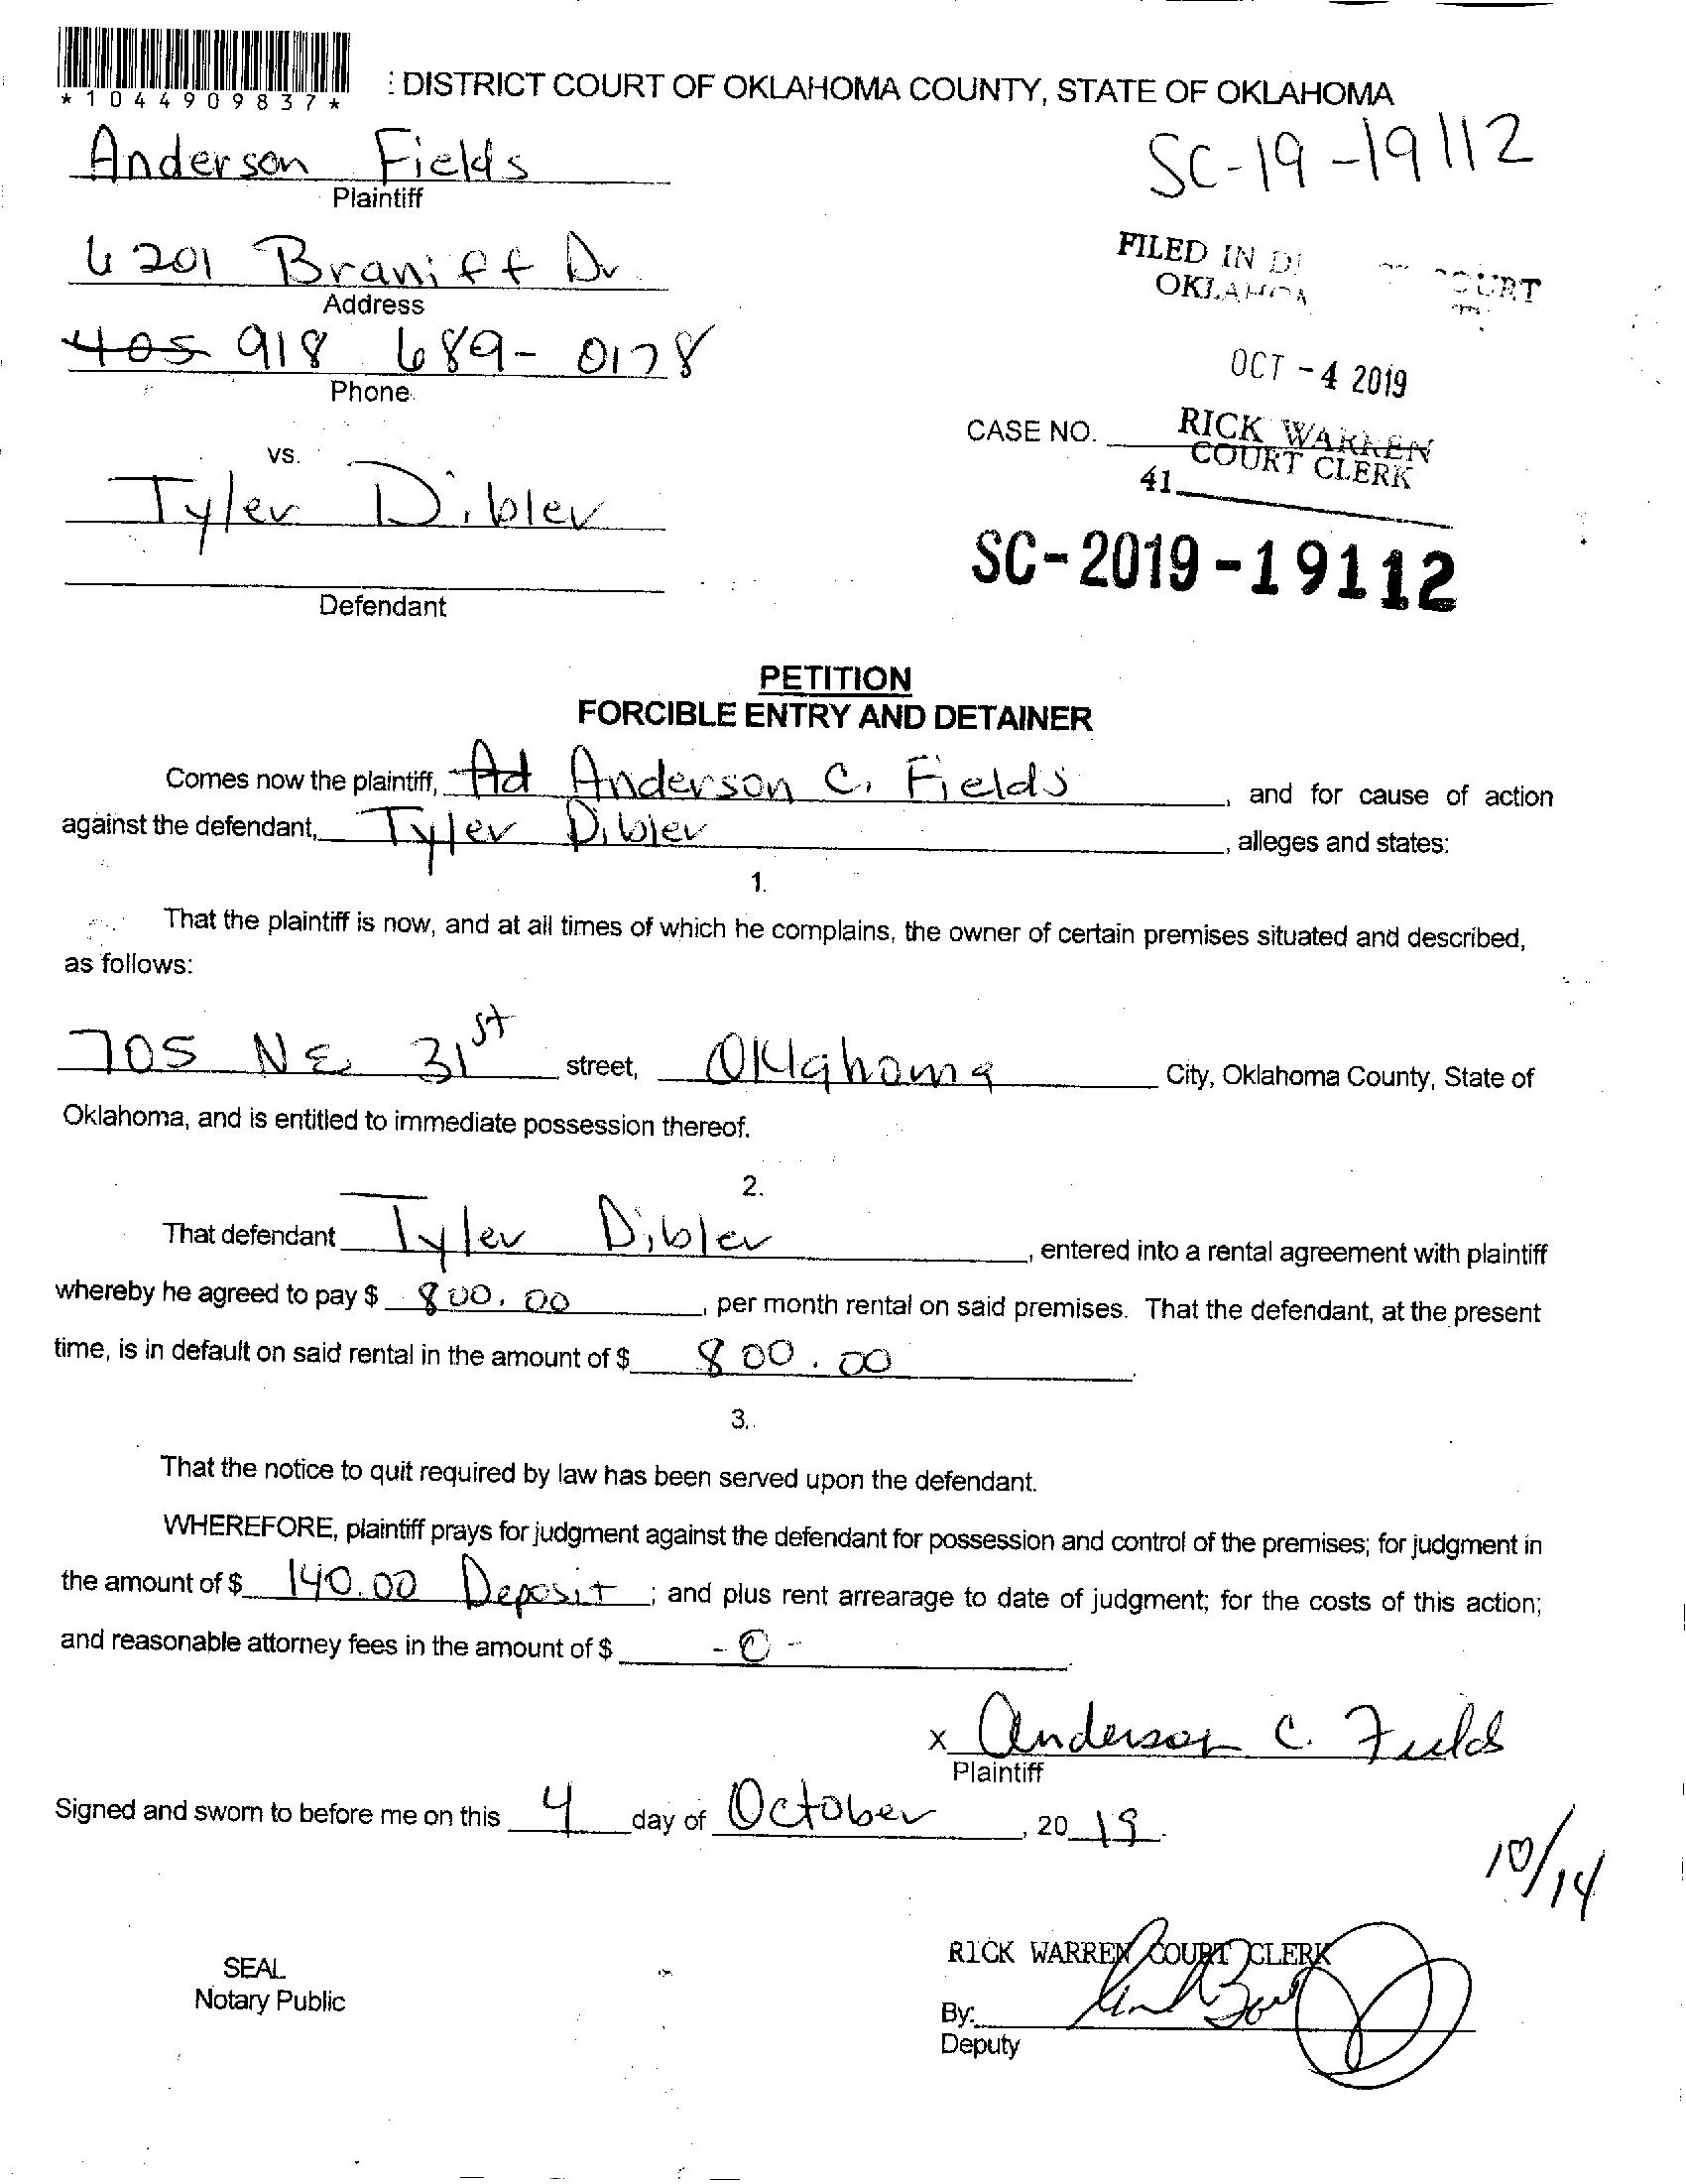 *1044909837*
: DISTRICT COURT OF OKLAHOMA COUNTY, STATE OF OKLAHOMA
Anderson Fields
Plaintiff
SC-19-19112
6201 Braniff Dr.
Address
FILED IN DI COURT
OKLAHOMA
405 918 689-0178
Phone
OCT - 4 2019
CASE NO.
RICK WARREN
COURT CLERK
41
vs.
Tyler Dibler
SC-2019-19112
Defendant
PETITION
FORCIBLE ENTRY AND DETAINER
Comes now the plaintiff, Ad Anderson C. Fields, and for cause of action
against the defendant, Tyler Dibler, alleges and states:
1.
That the plaintiff is now, and at all times of which he complains, the owner of certain premises situated and described,
as follows:
705 NE 31st street, Oklahoma City, Oklahoma County, State of
Oklahoma, and is entitled to immediate possession thereof.
2.
That defendant Tyler Dibler, entered into a rental agreement with plaintiff
whereby he agreed to pay $ 800.00, per month rental on said premises. That the defendant, at the present
time, is in default on said rental in the amount of $ 800.00.
3.
That the notice to quit required by law has been served upon the defendant.
WHEREFORE, plaintiff prays for judgment against the defendant for possession and control of the premises; for judgment in
the amount of $ 140.00 Deposit; and plus rent arrearage to date of judgment; for the costs of this action;
and reasonable attorney fees in the amount of $ -0-.
x Anderson C. Fields
Plaintiff
Signed and sworn to before me on this 4 day of October, 2019.
10/14
SEAL
Notary Public
RICK WARREN COURT CLERK
By:
Deputy